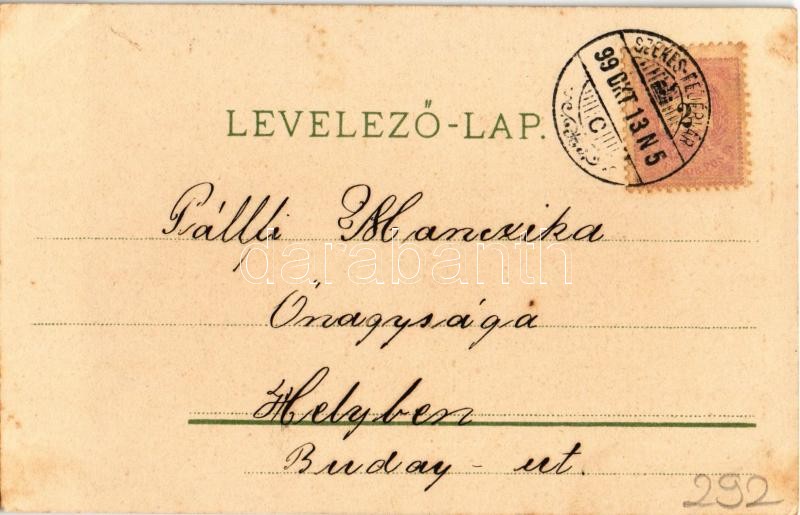 LEVELEZŐ-LAP.
SZÉKES-FEHÉRVÁR
99 OKT. 13 N 5
C
Pálffi Manczika
darabanth
Őnagysága
Helyben
Buday-ut.
292